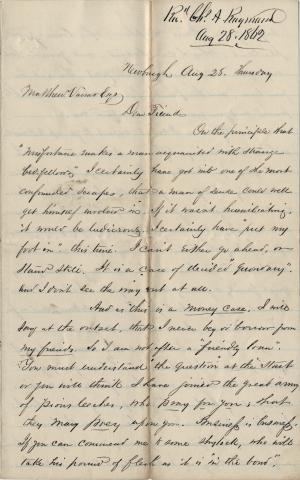 Rec'd Chs A Raymond
Aug 28. 1862
Newburgh Aug 28. Thursday
Matthew Vassar Esqr
Dear Friend
On the principle that
"misfortune makes a man acquainted with strange
bedfellows" I certainly have got into one of the most
confounded scrapes, that a man of sense could well
get himself involved in. If it wasn't humiliating,
it would be ludicrous. I certainly have put my
foot in" this time. I can't either go ahead, or
stand still. It is a case of decided "quandary".
and I don't see the way out at all.
And as this is a money case, I will
say at the outset, that I never beg or borrow from
my friends. So I am not after a "friendly loan".
You must understand "the question" at the start
or you will think I have joined the great army
of pious leeches, who pray for you, that
they may prey upon you. Business is business.
If you can commend me to some shylock, who will
take his pound of flesh as it is "in the bond",